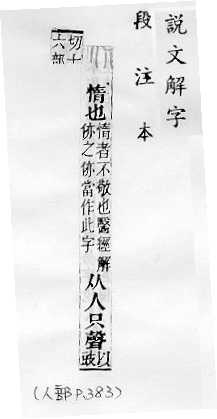 説文解字
段注本
惰也
惰者不敬也醫經解
㑊之㑊當作此字
从人只聲
以
豉
切十
六部
(人部 P.383)